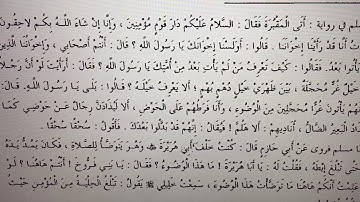 سلم في رواية : أَتَى الْمَقْبُرَةَ فَقَالَ : السَّلَامُ عَلَيْكُمْ دَارَ قَوْمٍ مُؤْمِنِينَ ، وَإِنَّا إِنْ شَاءَ اللَّهُ بِكُمْ لَاحِقُونَ
أَنَّا قَدْ رَأَيْنَا إِخْوَانَنَا . قَالُوا : أَوَلَسْنَا إِخْوَانَكَ يَا رَسُولَ اللَّهِ ؟ قَالَ : أَنْتُمْ أَصْحَابِي ، وَإِخْوَانُنَا الَّذِينَ
يَأْتُوا بَعْدُ . فَقَالُوا : كَيْفَ تَعْرِفُ مَنْ لَمْ يَأْتِ بَعْدُ مِنْ أُمَّتِكَ يَا رَسُولَ اللَّهِ ؟ فَقَالَ : أَرَأَيْتَ لَوْ أَنَّ رَجُلًا
خَيْلٌ غُرٌّ مُحَجَّلَةٌ ، بَيْنَ ظَهْرَيْ خَيْلٍ دُهْمٍ بُهْمٍ ، أَلَا يَعْرِفُ خَيْلَهُ ؟ قَالُوا : بَلَى يَا رَسُولَ اللَّهِ . قَالَ :
هُمْ يَأْتُونَ غُرًّا مُحَجَّلِينَ مِنَ الْوُضُوءِ ، وَأَنَا فَرَطُهُمْ عَلَى الْحَوْضِ ، أَلَا لَيُذَادَنَّ رِجَالٌ عَنْ حَوْضِي كَمَا
الْبَعِيرُ الضَّالُّ ، أُنَادِيهِمْ : أَلَا هَلُمَّ ! فَيُقَالُ : إِنَّهُمْ قَدْ بَدَّلُوا بَعْدَكَ . فَأَقُولُ : سُحْقًا سُحْقًا .
مسلم فروى عَنْ أَبِي حَازِمٍ قَالَ : كُنْتُ خَلْفَ أَبِي هُرَيْرَةَ ، وَهُوَ يَتَوَضَّأُ لِلصَّلَاةِ ، فَكَانَ يَمُدُّ يَدَهُ
حَتَّى تَبْلُغَ إِبْطَهُ . فَقُلْتُ لَهُ : يَا أَبَا هُرَيْرَةَ ! مَا هَذَا الْوُضُوءُ ؟ فَقَالَ : يَا بَنِي فَرُّوخَ ! أَنْتُمْ هَاهُنَا ؟ لَوْ
عَلِمْتُ أَنَّكُمْ هَاهُنَا مَا تَوَضَّأْتُ هَذَا الْوُضُوءَ ، سَمِعْتُ خَلِيلِي ﷺ يَقُولُ : تَبْلُغُ الْحِلْيَةُ مِنَ الْمُؤْمِنِ حَيْثُ